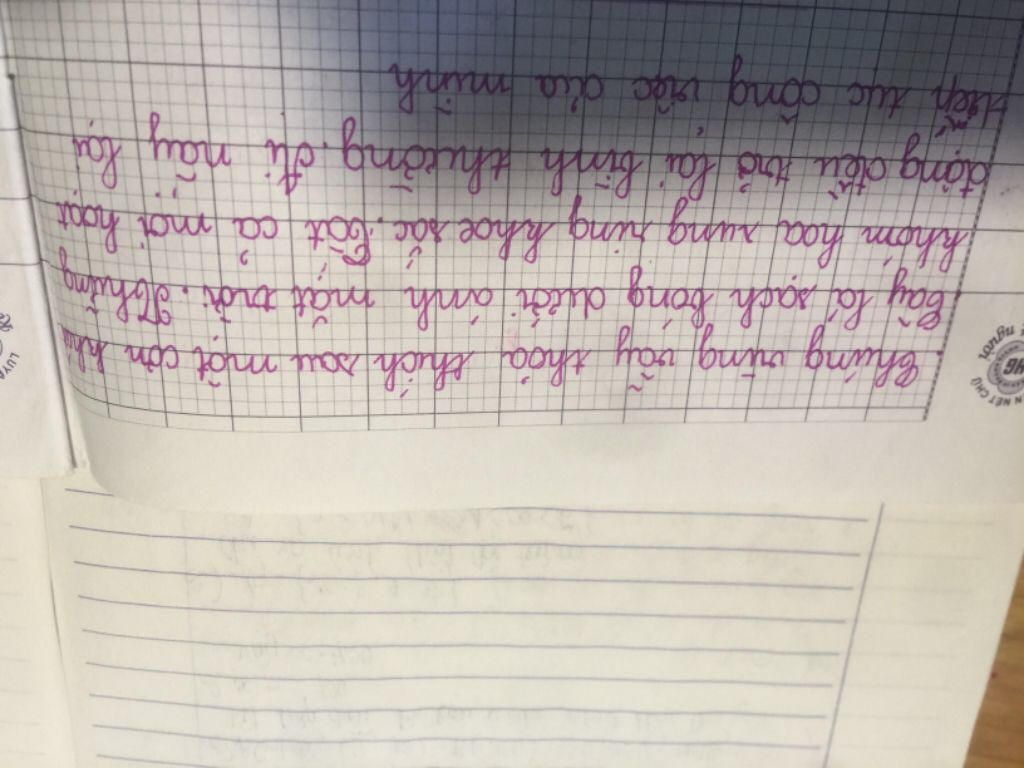 chúng vùng vẫy thoả thích sau một cơn
Cây lá sạch bóng dưới ánh mặt trời. Những
khóm hoa rung rung khoe sắc. Tất cả mọi hoạt
động đều trở lại bình thường. Ai nấy lại
tiếp tục công việc của mình
NÉT CHỮ